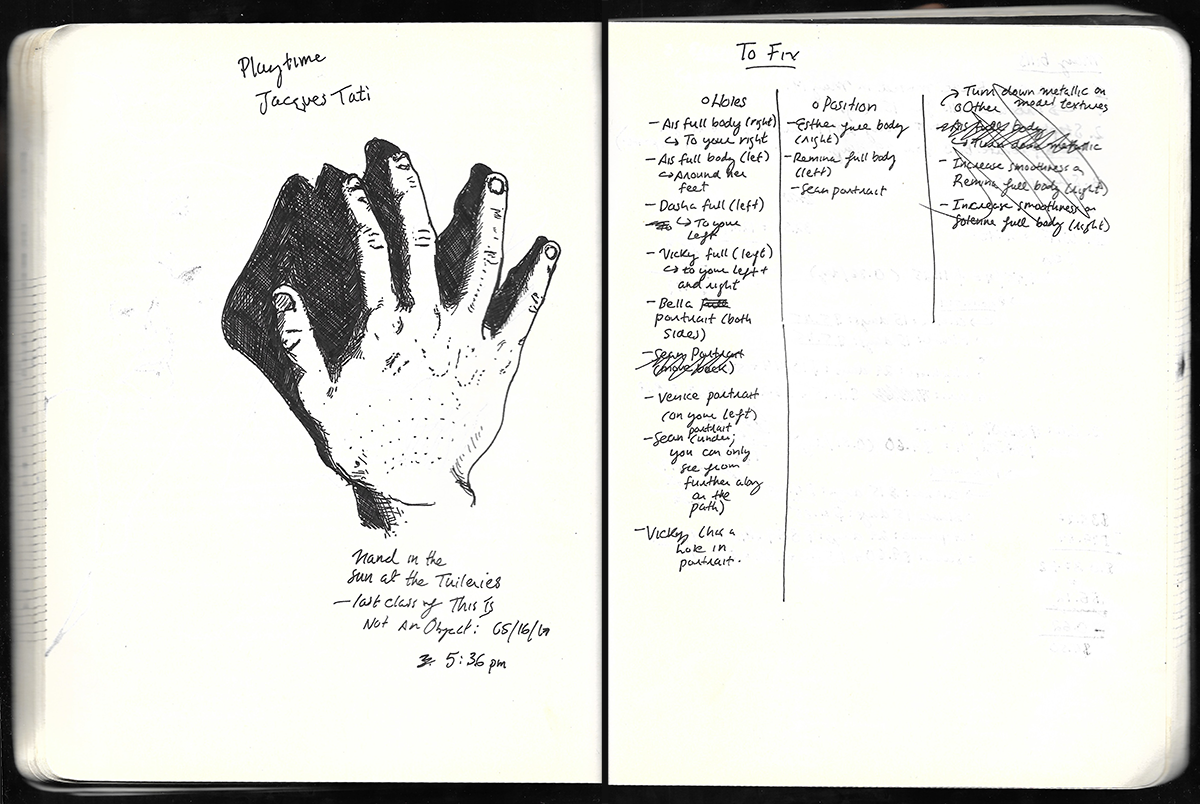 Playtime
Jacques Tati
Hand in the
sun at the Tuileries
— last class of This Is
Not An Object: 05/16/
5:36 pm
To Fix
o Holes
- Ais full body (right)
↳ To your right
- Ais full body (left)
↳ Around her
feet
- Dasha full (left)
↳ To your
left
- Vicky full (left)
↳ to your left +
and right
- Bella
portrait (both
sides)
- Sean Portrait
(move back)
- Venice portrait
(on your left)
portrait
- Sean (under,
you can only
see from
further along
on the
path)
- Vicky (has a
hole in
portrait.
o Position
- Esther full body
(right)
- Remina full body
(left)
- Sean portrait
→ Turn down metallic on
o Other model textures
- Ais full body
↳ Turn down metallic
- Increase smoothness on
Remina full body (right)
- Increase smoothness on
full body (right)